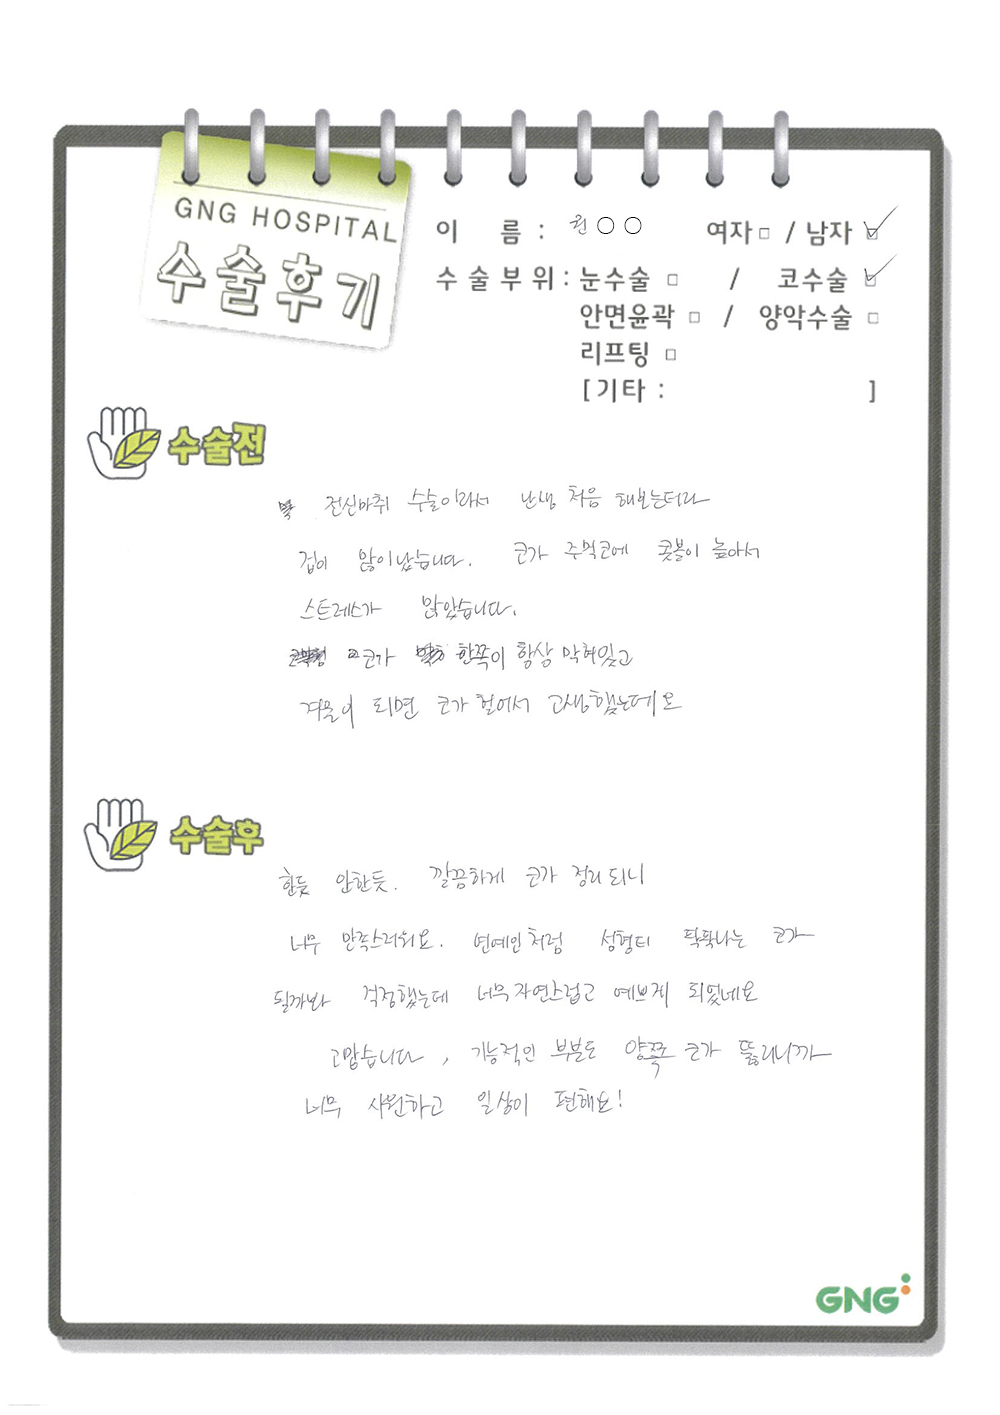 GNG HOSPITAL
수술후기
이 름 : 권○○ 여자□ / 남자☑
수술부위 : 눈수술 □ / 코수술 ☑
안면윤곽 □ / 양악수술 □
리프팅 □
[기타 : ]
수술전
전신마취 수술이라서 난생 처음 해보는터라
겁이 많이났습니다. 코가 주먹코에 콧볼이 높아서
스트레스가 많았습니다.
코가 한쪽이 항상 막혀있고
겨울이 되면 코가 헐어서 고생했는데요
수술후
한듯 안한듯. 깔끔하게 코가 정리되니
너무 만족스러워요. 연예인처럼 성형티 팍팍나는 코가
될까봐 걱정했는데 너무자연스럽고 예쁘게 되었네요
고맙습니다, 기능적인 부분도 양쪽 코가 뚫리니까
너무 시원하고 일상이 편해요!
GNG